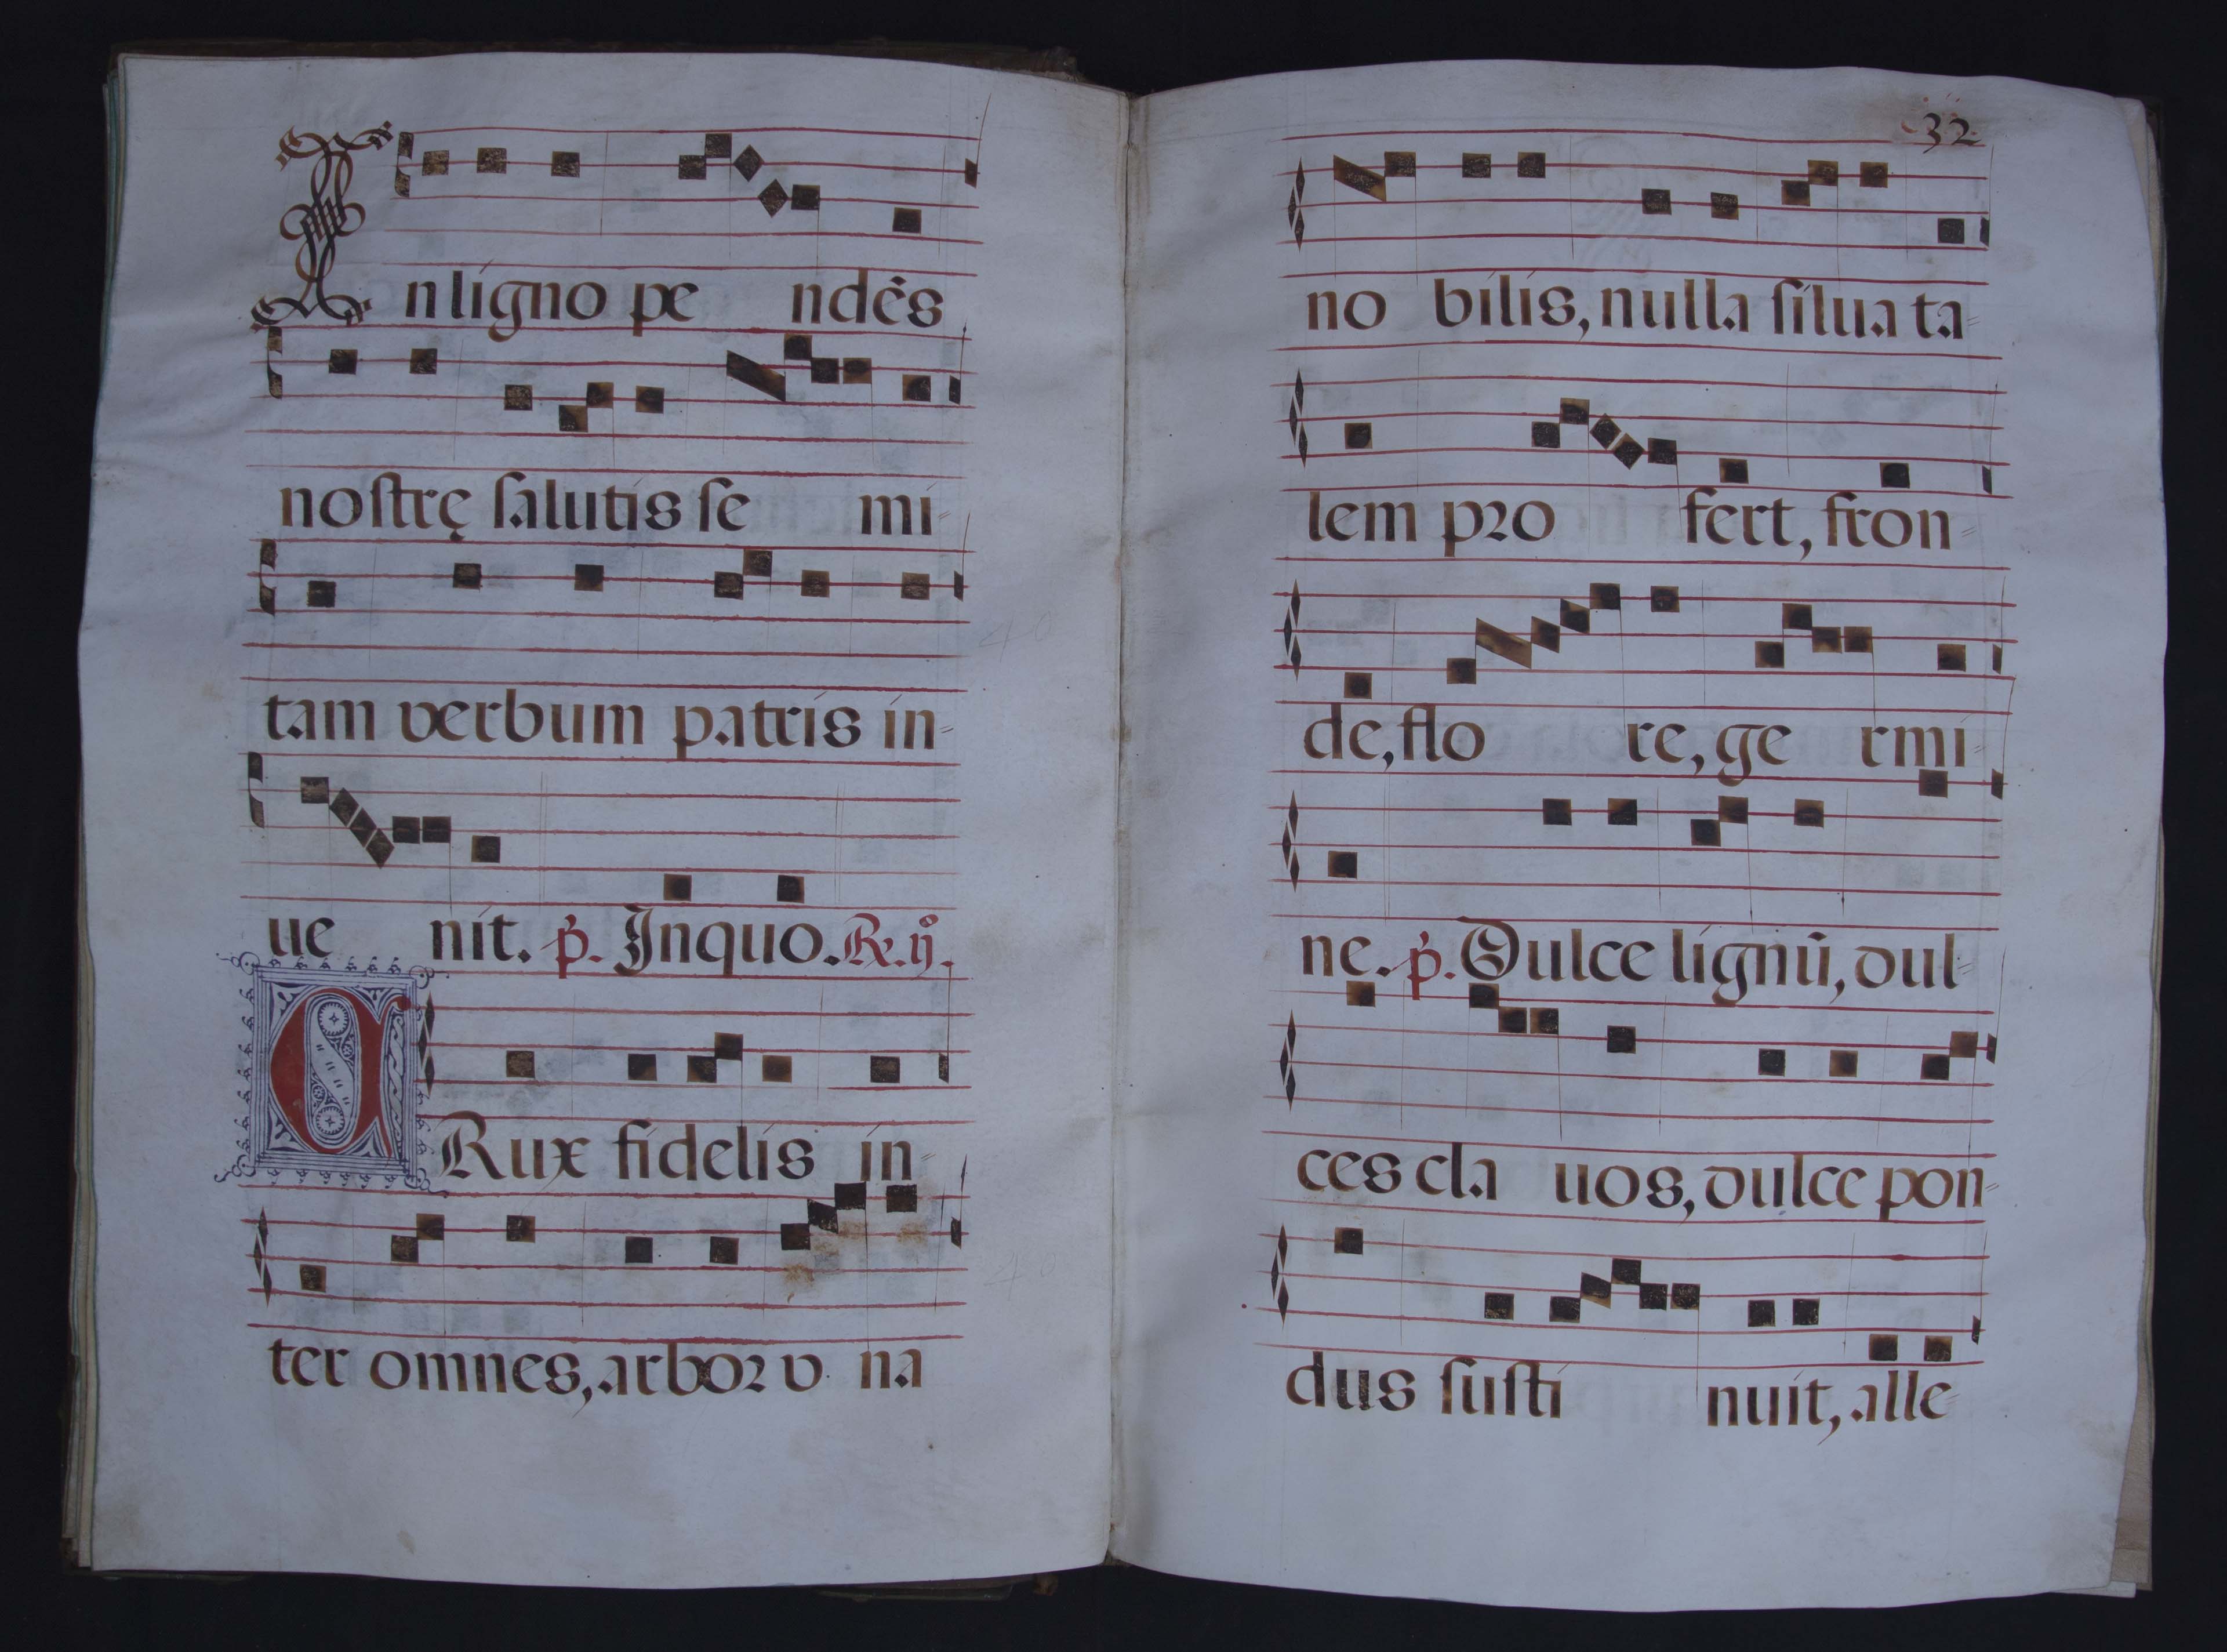 In ligno pe ndēs
nostrę salutis se mi-
tam verbum patris in=
ue nit. p̄. Inquo. R. ij.
CRux fidelis in=
ter omnes, arbor v na
32
no bilis, nulla silua ta=
lem pro fert, fron=
de, flo re, ge rmi=
ne. p̄. Dulce lignū, dul=
ces cla uos, dulce pon=
dus susti nuit, alle=